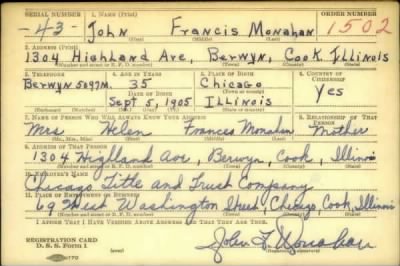 SERIAL NUMBER 1. NAME (Print) ORDER NUMBER
-43- John Francis Monahan 1502
(First) (Middle) (Last)
2. ADDRESS (Print)
1304 Highland Ave, Berwyn, Cook, Illinois
(Number and street or R. F. D. number) (Town) (County) (State)
3. TELEPHONE 4. AGE IN YEARS 5. PLACE OF BIRTH 6. COUNTRY OF CITIZENSHIP
Berwyn 5097M. 35 Chicago
DATE OF BIRTH (Town or county) Yes
Sept 5, 1905 Illinois
(Exchange) (Number) (Mo.) (Day) (Yr.) (State or country)
7. NAME OF PERSON WHO WILL ALWAYS KNOW YOUR ADDRESS 8. RELATIONSHIP OF THAT PERSON
Mrs Helen Frances Monahan Mother
(Mr., Mrs., Miss) (First) (Middle) (Last)
9. ADDRESS OF THAT PERSON
1304 Highland Ave, Berwyn, Cook, Illinois
(Number and street or R. F. D. number) (Town) (County) (State)
10. EMPLOYER'S NAME
Chicago Title and Trust Company
11. PLACE OF EMPLOYMENT OR BUSINESS
69 West Washington Street, Chicago, Cook, Illinois
(Number and street or R. F. D. number) (Town) (County) (State)
I AFFIRM THAT I HAVE VERIFIED ABOVE ANSWERS AND THAT THEY ARE TRUE.
REGISTRATION CARD
D. S. S. Form 1
John F. Monahan